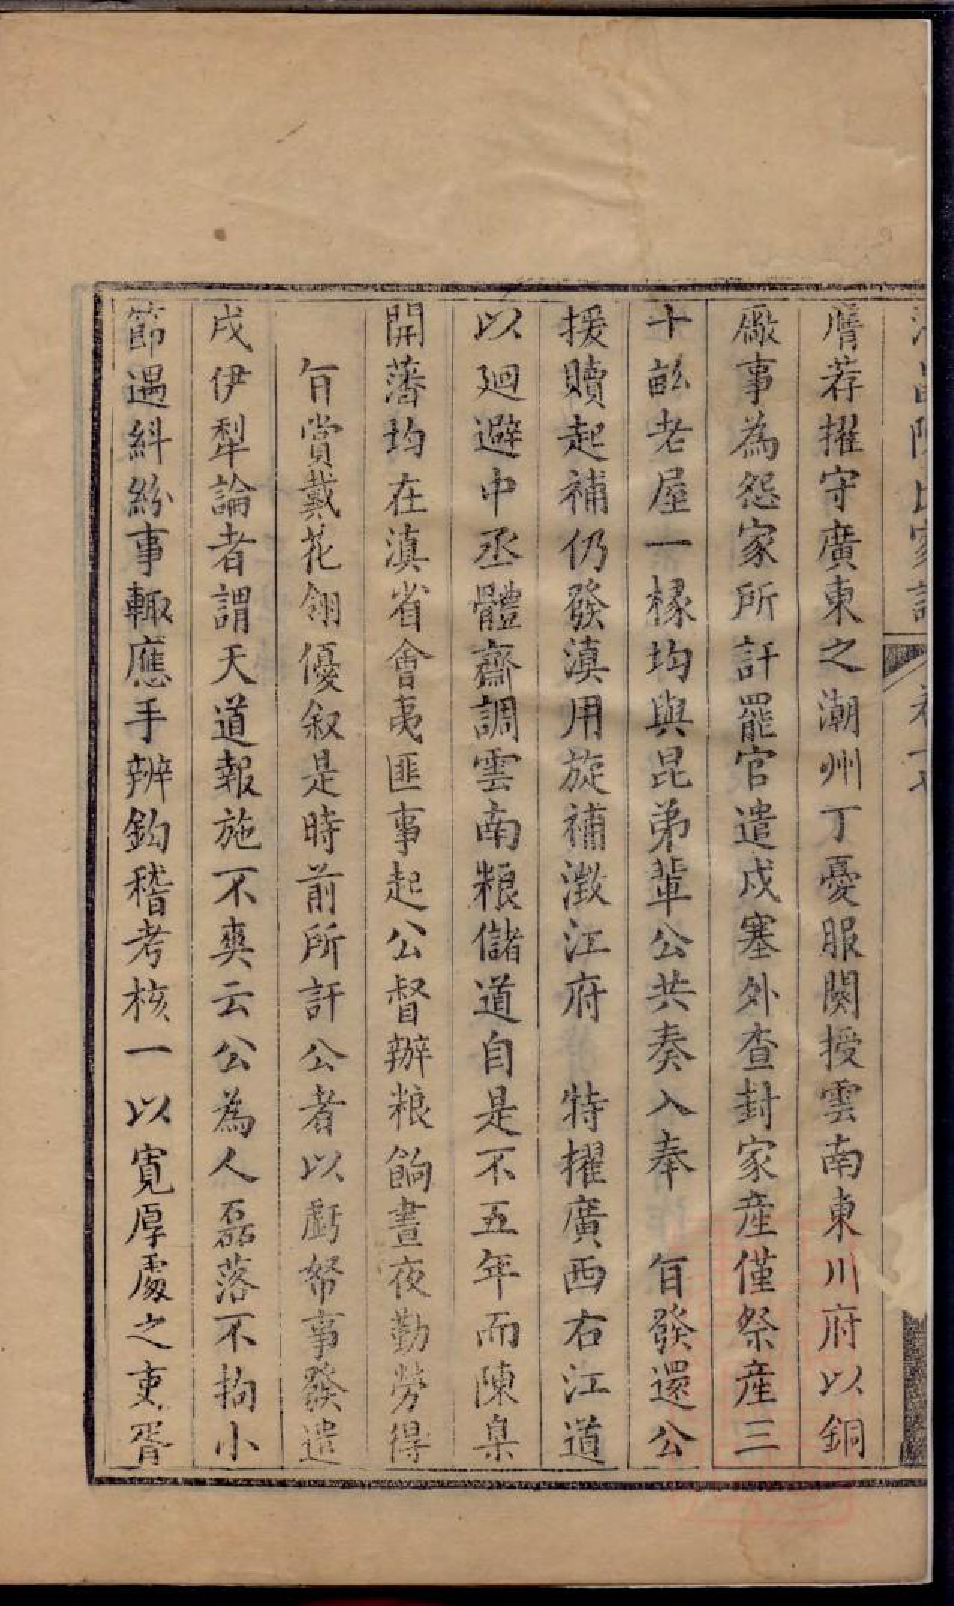 膺荐擢守廣東之潮州丁憂服闋授雲南東川府以銅
廠事為怨家所訐罷官遣戍塞外查封家產僅祭產三
十畝老屋一椽均與昆弟輩公共奏入奉 旨發還公
援贖起補仍發滇用旋補澂江府 特擢廣西右江道
以迴避中丞體齋調雲南粮儲道自是不五年而陳臬
開藩均在滇省會夷匪事起公督辦粮餉晝夜勤勞得
旨賞戴花翎優叙是時前所訐公者以虧帑事發遣
戍伊犁論者謂天道報施不爽云公為人磊落不拘小
節遇糾紛事輙應手辨鈎稽考核一以寬厚處之吏胥